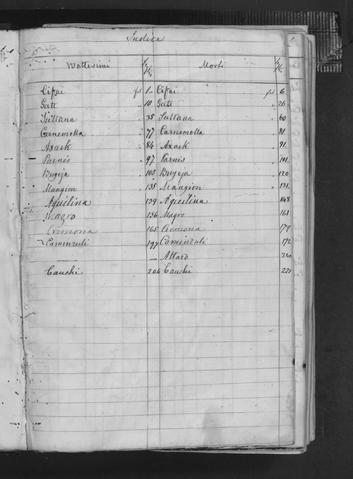 Indice
Battesimi Morti
Cifai 1 Cifai 6
Gatt 10 Gatt 26
Sultana 35 Sultana 60
Carnemolla 77 Carnemolla 81
Azzack 84 Azzack 91
Parnis 97 Parnis 101
Bugeja 105 Bugeja 120
Mangion 135 Mangion 131
Aquilina 139 Aquilina 148
Magro 156 Magro 161
Cremona 165 Cremona
Caminzuli 197 Caminzuli 172
— Attard
Cauchi 206 Cauchi 221